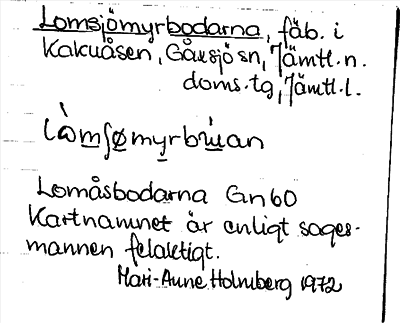 Lomsjömyrbodarna, fäb. i
Kakuåsen, Gåxsjö sn, Jämtl. n.
doms. tg, Jämtl. l.
Lomåsbodarna Gn 60
Kartnamnet är enligt sages-
mannen felaktigt.
Mari-Anne Holmberg 1972